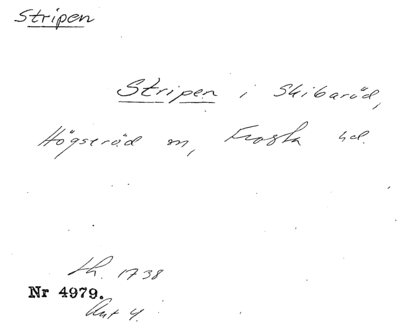 Stripen
Stripen i Skibaröd,
Högseröd sn, Frosta hd.
Lh. 1738
Nr 4979.
Ant 4.